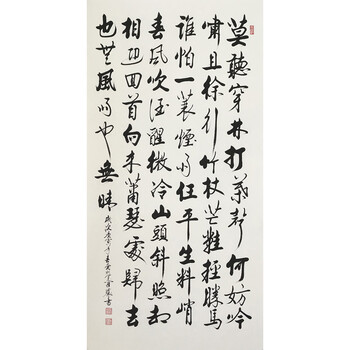 莫聽穿林打葉聲何妨吟
嘯且徐行竹杖芒鞋輕勝馬
誰怕一蓑煙雨任平生料峭
春風吹酒醒微冷山頭斜照却
相迎回首向來蕭瑟處歸去
也無風雨也無晴 歲次庚寅年春 書